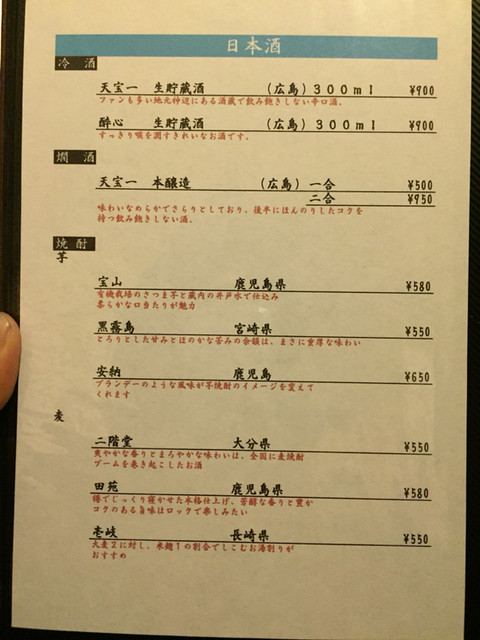 日本酒
冷酒
天宝一 生貯蔵酒 （広島）３００ｍｌ ¥900
ファンも多い地元神辺にある酒蔵で飲み飽きしない辛口酒。
酔心 生貯蔵酒 （広島）３００ｍｌ ¥900
すっきり喉を潤すきれいなお酒です。
燗酒
天宝一 本醸造 （広島）一合 ¥500
二合 ¥950
味わいなめらかでさらりとしており、後半にほんのりしたコクを
持つ飲み飽きしない酒。
焼酎
芋
宝山 鹿児島県 ¥580
有機栽培のさつま芋と蔵内の井戸水で仕込み
柔らかな口当たりが魅力
黒霧島 宮崎県 ¥550
とろりとした甘みとほのかな苦みの余韻は、まさに重厚な味わい
安納 鹿児島 ¥650
ブランデーのような風味が芋焼酎のイメージを変えて
くれます
麦
二階堂 大分県 ¥550
爽やかな香りとまろやかな味わいは、全国に麦焼酎
ブームを巻き起こしたお酒
田苑 鹿児島県 ¥580
樽でじっくり寝かせた本格仕上げ、芳醇な香りと豊か
コクのある旨味はロックで楽しみたい
壱岐 長崎県 ¥550
大麦２に対し、米麹１の割合でしこむお湯割りが
おすすめ